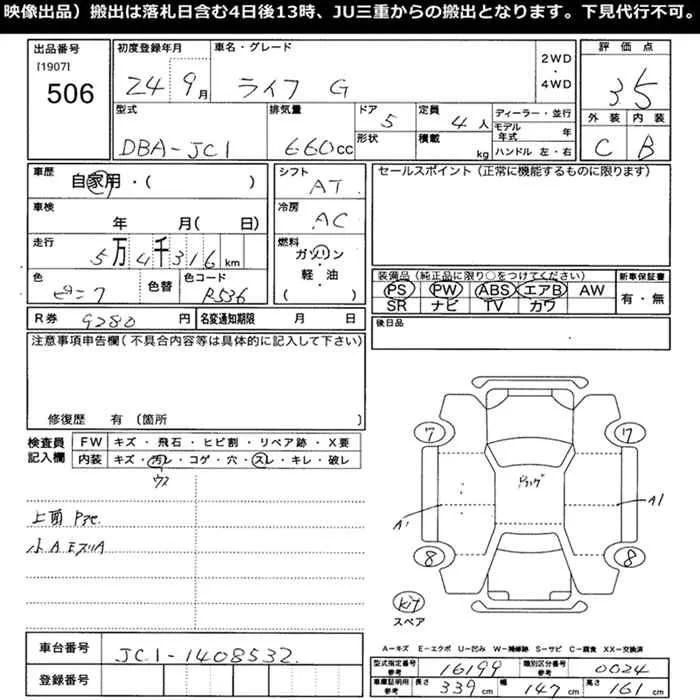 映像出品）搬出は落札日含む4日後13時、JU三重からの搬出となります。下見代行不可。
出品番号
[1907]
506
初度登録年月
24年9月
車名・グレード
ライフ G
2WD・4WD
評価点
3.5
外装 内装
C B
型式
DBA-JC1
排気量
660cc
ドア
5
形状
定員
4人
積載
kg
ディーラー・並行
モデル年式 年
ハンドル 左・右
車歴
自家用・( )
シフト
AT
セールスポイント（正常に機能するものに限ります）
車検
年 月( 日)
冷房
AC
走行
5万4千316km
燃料
ガソリン・軽・油
( )
色
ピンク
色替
色コード
R536
装備品（純正品に限り○をつけてください）
PS PW ABS エアB AW
SR ナビ TV カワ
新車保証書
有・無
R券 9280円
名変通知期限 月 日
後日品
注意事項申告欄（不具合内容等は具体的に記入して下さい）
修復歴 有（箇所 ）
検査員記入欄
FW キズ・飛石・ヒビ割・リペア跡・X要
内装 キズ・汚レ・コゲ・穴・スレ・キレ・破レ
ウス
上面
小A エスリA
7 7
A1 A1
8 8
スペア
A＝キズ E＝エクボ U＝凹み W＝補修跡 S＝サビ C＝腐食 XX＝交換済
車台番号
JC1-1408532
登録番号
型式指定番号 参考 16199
類別区分番号 参考 0024
車庫証明用 参考 長さ 339cm 幅 147cm 高さ 161cm